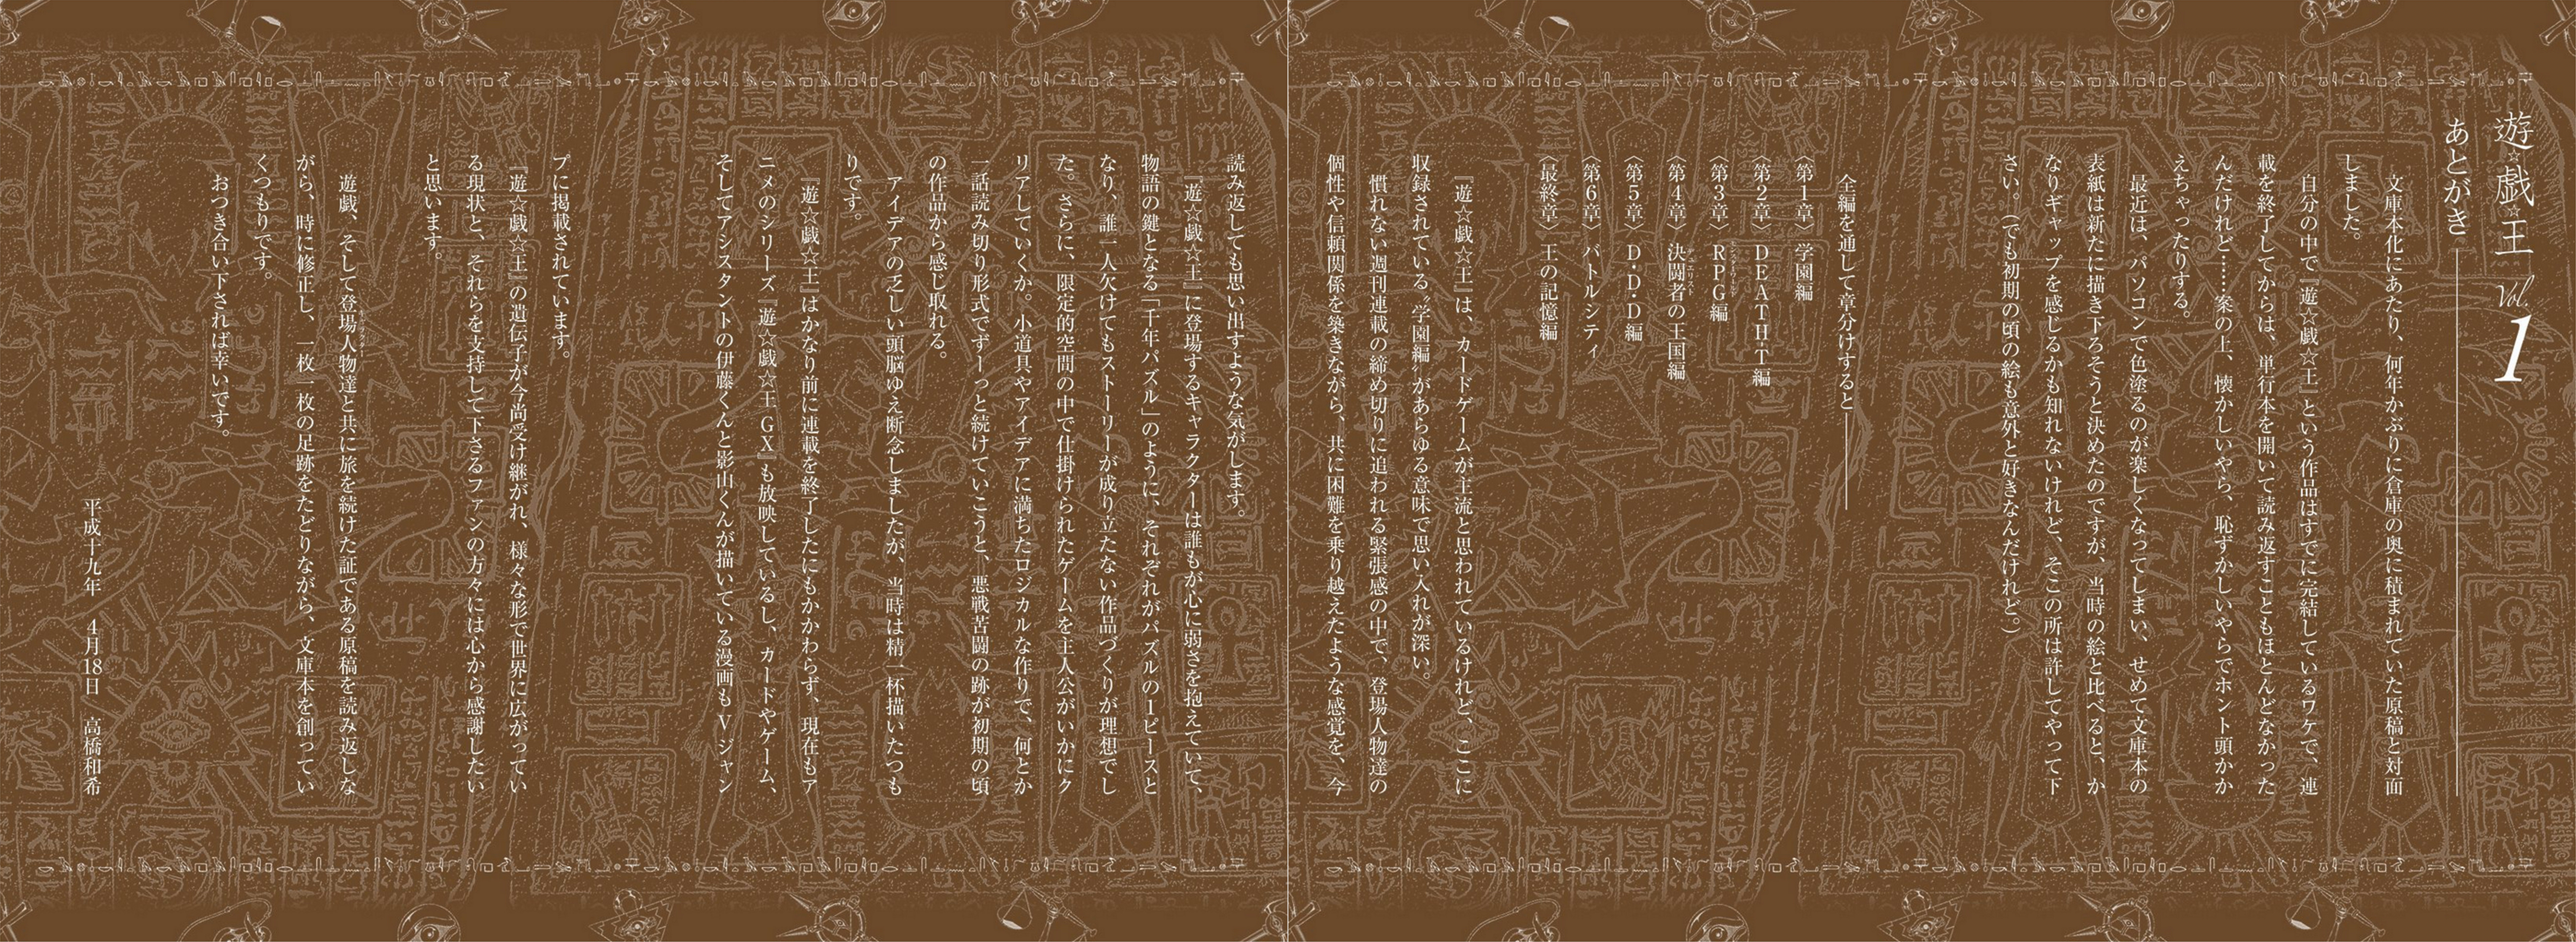 遊☆戯☆王 Vol.1
あとがき
文庫本化にあたり、何年かぶりに倉庫の奥に積まれていた原稿と対面
しました。
自分の中で『遊☆戯☆王』という作品はすでに完結しているワケで、連
載を終了してからは、単行本を開いて読み返すこともほとんどなかった
んだけれど……案の上、懐かしいやら、恥ずかしいやらでホント頭かか
えちゃったりする。
最近は、パソコンで色塗るのが楽しくなってしまい、せめて文庫本の
表紙は新たに描き下ろそうと決めたのですが、当時の絵と比べると、か
なりギャップを感じるかも知れないけれど、そこの所は許してやって下
さい。(でも初期の頃の絵も意外と好きなんだけれど。)
全編を通して章分けすると――
〈第1章〉 学園編
〈第2章〉 DEATH-T編
〈第3章〉 RPG編
〈第4章〉 決闘者の王国編
〈第5章〉 D・D・D編
〈第6章〉 バトルシティ
〈最終章〉 王の記憶編
『遊☆戯☆王』は、カードゲームが主流と思われているけれど、ここに
収録されている〝学園編〟があらゆる意味で思い入れが深い。
慣れない週刊連載の締め切りに追われる緊張感の中で、登場人物達の
個性や信頼関係を築きながら、共に困難を乗り越えたような感覚を、今
読み返しても思い出すような気がします。
『遊☆戯☆王』に登場するキャラクターは誰もが心に弱さを抱えていて、
物語の鍵となる「千年パズル」のように、それぞれがパズルの1ピースと
なり、誰一人欠けてもストーリーが成り立たない作品づくりが理想でし
た。さらに、限定的空間の中で仕掛けられたゲームを主人公がいかにク
リアしていくか。小道具やアイデアに満ちたロジカルな作りで、何とか
一話読み切り形式でずーっと続けていこうと、悪戦苦闘の跡が初期の頃
の作品から感じ取れる。
アイデアの乏しい頭脳ゆえ断念しましたが、当時は精一杯描いたつも
りです。
『遊☆戯☆王』はかなり前に連載を終了したにもかかわらず、現在もア
ニメのシリーズ『遊☆戯☆王GX』も放映しているし、カードやゲーム、
そしてアシスタントの伊藤くんと影山くんが描いている漫画もVジャン
プに掲載されています。
『遊☆戯☆王』の遺伝子が今尚受け継がれ、様々な形で世界に広がってい
る現状と、それらを支持して下さるファンの方々には心から感謝したい
と思います。
遊戯、そして登場人物達と共に旅を続けた証である原稿を読み返しな
がら、時に修正し、一枚一枚の足跡をたどりながら、文庫本を創ってい
くつもりです。
おつき合い下されば幸いです。
平成十九年 4月18日 高橋和希